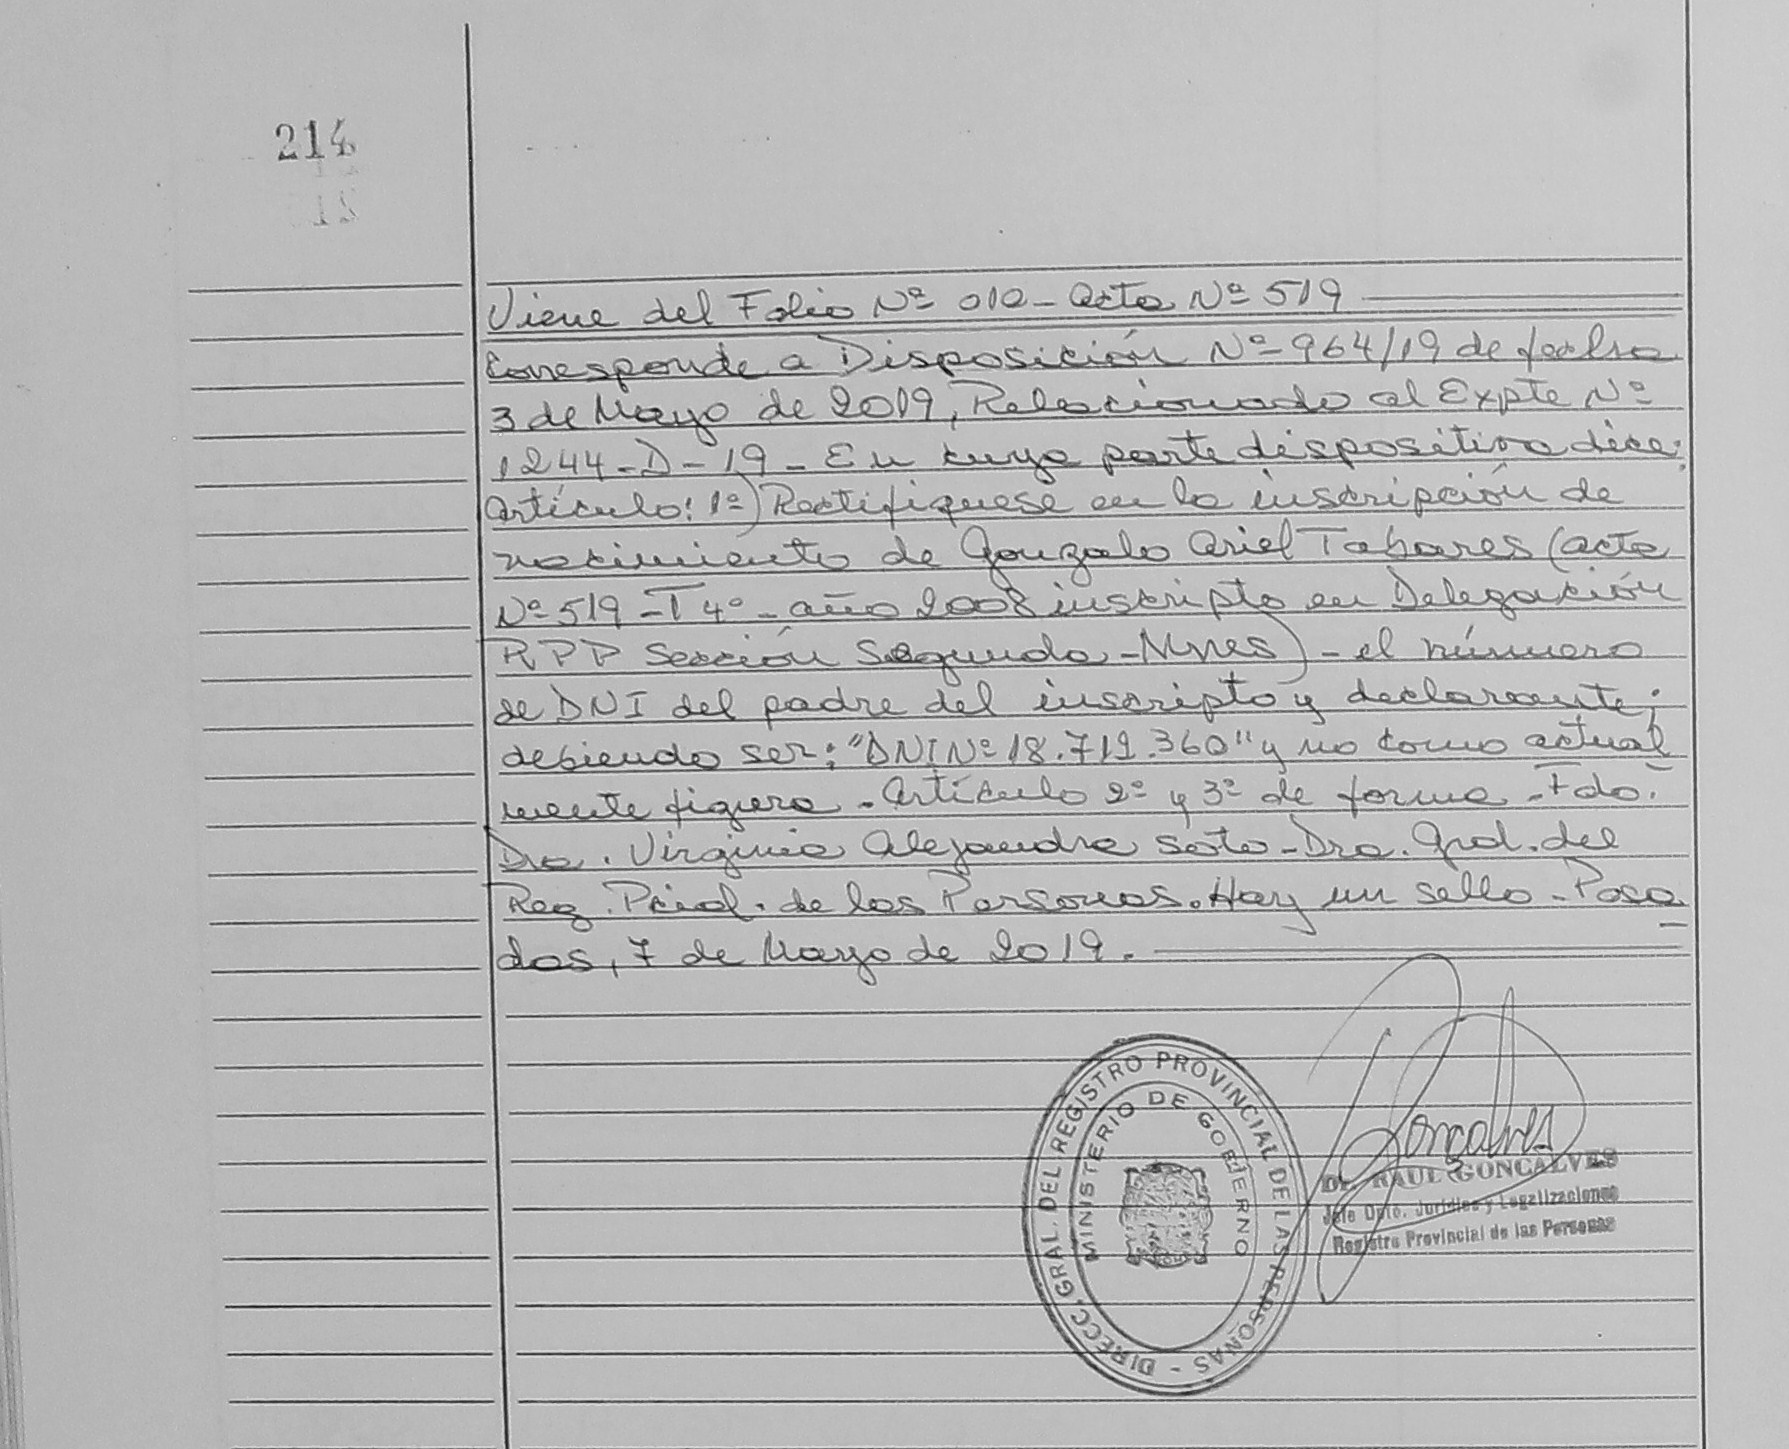 214
Viene del Folio Nº 010 - acta Nº 519
Corresponde a Disposición Nº 964/19 de fecha
3 de Mayo de 2019, Relacionado al Expte Nº
1244-D-19 - En cuya parte dispositiva dice:
Artículo: 1º) Rectifíquese en la inscripción de
nacimiento de Gonzalo Ariel Tabares (acta
Nº 519 - T 4º - año 2008 inscripto en Delegación
RPP Sección Segunda - Mnes) - el número
de DNI del padre del inscripto y declarante;
debiendo ser: "DNI Nº 18.719.360" y no como actual
mente figura - Artículo 2º y 3º de forma - Fdo.
Dra. Virginia Alejandra Soto - Dra. Gral. del
Reg. Pcial. de las Personas. Hay un sello - Posa
das, 7 de Mayo de 2019.
DIRECC. GRAL. DEL REGISTRO PROVINCIAL DE LAS PERSONAS -
MINISTERIO DE GOBIERNO
Goncalves
Dr. RAUL GONCALVES
Jefe Dpto. Jurídico y Legalizaciones
Registro Provincial de las Personas